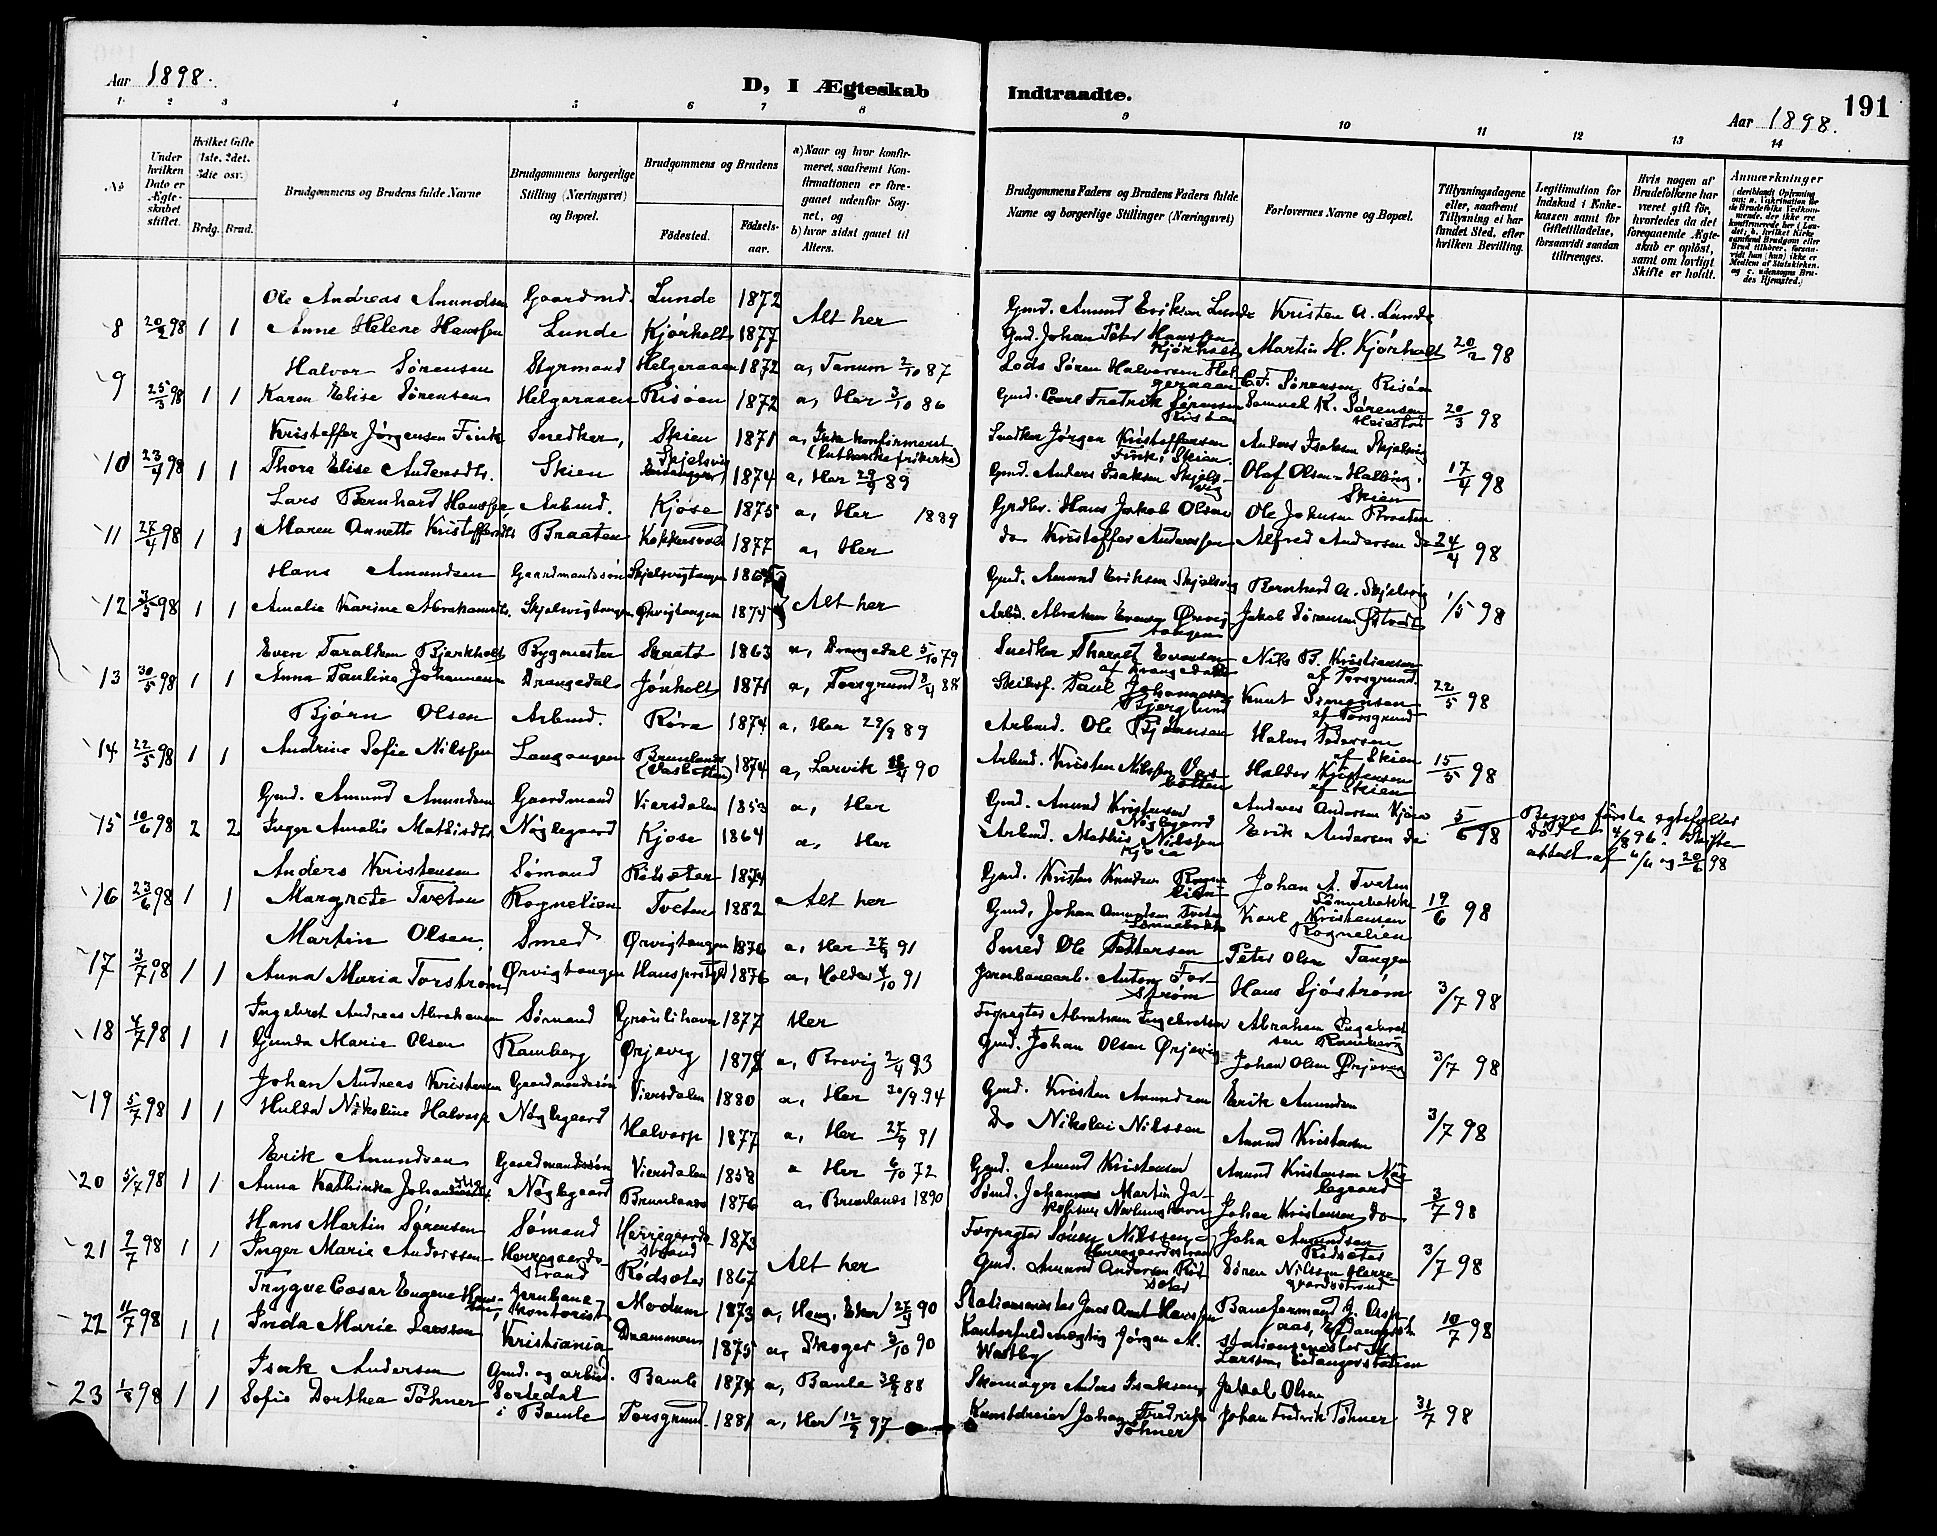 Aar 1898.
D, I Ægteskab Indtraadte.
191
Aar 1898.
1 2 3 4 5 6 7 8 9 10 11 12 13 14
No
Under hvilken Dato er Ægteskabet stiftet.
Hvilket Gifte (1ste, 2det, 3die osv.)
Brdg. Brud.
Brudgommens og Brudens fulde Navne
Brudgommens borgerlige Stilling (Næringsvei) og Bopæl.
Brudgommens og Brudens
Fødested.
Fødselsaar.
a) Naar og hvor konfirmeret, saafremt Konfirmationen er foregaaet udenfor Sognet, og
b) hvor sidst gaaet til Alters.
Brudgommens Faders og Brudens Faders fulde Navne og borgerlige Stillinger (Næringsvei)
Forlovernes Navne og Bopæl.
Tillysningsdagene eller, saafremt Tillysning ei har fundet Sted, efter hvilken Bevilling.
Legitimation for Indskud i Enkekassen samt for Giftetilladelse, forsaavidt saadan tiltrænges.
Hvis nogen af Brudefolkene har været gift før, hvorledes da det foregaaende Ægteskab er opløst, samt om lovligt Skifte er holdt.
Anmærkninger
Ole Andreas Amundsen Gaardmd. Lunde 1872 Alt her Gmd. Amund Eriksen Lunde Kristen A. Lunde
8 20/2 98 1 1 Anne Helene Hanssen Lunde Kjørholt 1877 Gmd. Johan Peter Hanssen Kjørholt Martin H. Kjørholt 20/2 98
Halvor Sørensen Styrmand Helgeraaen 1872 a, Tanum 2/10 87 Lods Søren Halvorsen Helgeraaen C. F. Sørensen, Risøen
9 25/3 98 1 1 Karen Elise Sørensen Helgeraaen Risøen 1872 a, Her 3/10 86 Gmd. Carl Fredrik Sørensen Risøen Samuel K. Sørensen Heistad 20/3 98
Kristoffer Jørgensen Fink Snedker, Skien 1871 a, Ikke konfirmeret (lutherske frikirke) Snedker Jørgen Kristoffersen Fink i Skien. Anders Isaksen Skjelsvig
10 23/4 98 1 1 Thora Elise Andersdtr. Skien Skjelsvig 1874 a, Her 29/9 89 Gmd. Anders Isaksen Skjelsvig Olaf Olsen-Halling, Skien 17/4 98
Lars Bernhard Hanssen Arbmd. Kjøse 1875 a, Her 1889 Grdbr. Hans Jakob Olsen Ole Johnsen Braaten
11 27/4 98 1 1 Maren Annette Kristoffersdtr Braaten Kokkersvold 1877 a, Her do Kristoffer Anderssen Alfred Andersen do 24/4 98
Hans Amundsen Gaardmandssøn Skjelsvigtangen Alt her Gmd. Amund Eriksen Skjelsvig Bernhard A. Skjelsvig
12 3/5 98 1 1 Amalie Karine Abrahamsdtr. Skjelsvigtangen Ørvigtangen 1875 Arbd. Abraham Evensen Ørvigtangen Jakob Sørensen 1/5 98
Even Taraldsen Bjerkholt Bygmester 1863 a, Drangedal 5/10 79 Snedker Tharalt Evensen af Drangedal Nils B. Kristiansen af Porsgrund
13 30/5 98 1 1 Anna Pauline Johannesen Drangedal Jønholt 1871 a, Porsgrund 8/4 88 Skibsf. Paul Johannessen Bjerglund Knut Simonsen af Porsgrund 22/5 98
Bjørn Olsen Arbmd. Røra 1874 a, Her 29/9 89 Arbmd. Ole Bjørnsen Halvor Pedersen af Skien
14 22/5 98 1 1 Andrine Sofie Nilssen Langangen Brunlanes (Vasbotten) 1874 a, Larvik 90 Arbmd. Kristen Nilssen Vasbotten Halder Kristensen af Skien 15/5 98
Gmd. Amund Amundsen Gaardmand Viersdalen 1853 a, Her Gmd. Amund Kristensen Nøglegaard Anders Andersen Kjøse
15 10/6 98 2 2 Inger Amalie Mathisdtr Nøglegaard Kjose 1864 a, Her Arbmd. Mathis Nilssen Kjøse Erik Andersen do 5/6 98 Begges første egtefæller døde 4/8 96. Skifteattest af 4/4 og 20/6 98
Anders Kristensen Sømand Rødsæter 1874 Gmd. Kristen Knudsen Rognelien Johan A. Tveten Sønnebakke
16 23/6 98 1 1 Margrete Tveten Rognelien Tveten 1882 Alt her Gmd. Johan Amundsen Tveten Sønnebakke Karl Kristensen Rognelien 19/6 98
Martin Olsen, Smed Ørvigtangen 1870 a, Her 27/9 91 Smed Ole Pettersen Peter Olsen Tangen
17 3/7 98 1 1 Anna Maria Forstrøm Ørvigtangen 1876 a, Holden 4/10 91 Jernbanearb. Anton Forstrøm Hans Sjøstrøm 3/7 98
Ingebret Andreas Abrahamsen Sømand Grønlihavn 1877 Her Forpagter Abraham Ingebretsen Abraham Ingebretsen Ramberg
18 4/7 98 1 1 Gunda Marie Olsen Ramberg Ørjevig 1878 a, Brevig 2/4 93 Gmd. Johan Olsen Ørjevig Johan Olsen Ørjevig 3/7 98
Johan Andreas Kristensen Gaardmandssøn Viersdalen 1880 a, Her 30/9.94 Gmd. Kristen Amundsen Erik Amundsen
19 5/7 98 1 1 Hulda Nikoline Halvorp Nøglegaard Halvorp 1877 a, Her 27/9 91 Do Nikolai Nilssen Amund Kristensen 3/7 98
Erik Amundsen Gaardmandssøn Viersdalen 1858 a Her 6/10 72 Gmd. Amund Kristensen Amund Kristensen Nøglegaard
20 5/7 98 1 1 Anna Kathinka Johannesdtr Nøglegaard Brunlanes 1876 a, Brunlanes 1890 Sømd. Johannes Martin Jakobsen Nevlunghavn Johan Kristensen do 3/7 98
Hans Martin Sørensen Sømand Herregaardsstrand 1873 Forpagter Søren Nilssen Herregaardsstrand John Amundsen Rødsæter
21 9/7 98 1 1 Inger Marie Anderssen Herregaardsstrand Rødsæter 1867 Alt her Gmd. Amund Andersen Rødsæter Søren Nilssen Herregaardsstrand 3/7 98
Trygve Cæsar Eugene Hanssen, Jernbanekontorist Modum 1873 a, Haug, Eker 27/9 90 Stationsmester Jens Arnt Hanssen Baneformand Aas, Eidanger st
22 11/7 98 1 1 Inda Marie Larssen Kristiania Drammen 1875 a, Skoger 5/10 90 Kontorfuldmægtig Jørgen M. Westby Stationsmester M. Larssen, Eidanger station 10/7 98
Isak Andersen Gmd. og arbd. Bamle 1874 a, Bamle 88 Skomager Anders Isaksen Jakob Olsen
23 1/8 98 1 1 Sofie Dorthea Tøhner Sortedal i Bamle Porsgrund 1881 a, Her 12/9 97 Kunstdreier Johan Fredrik Tøhner Johan Fredrik Tøhner 31/7 98